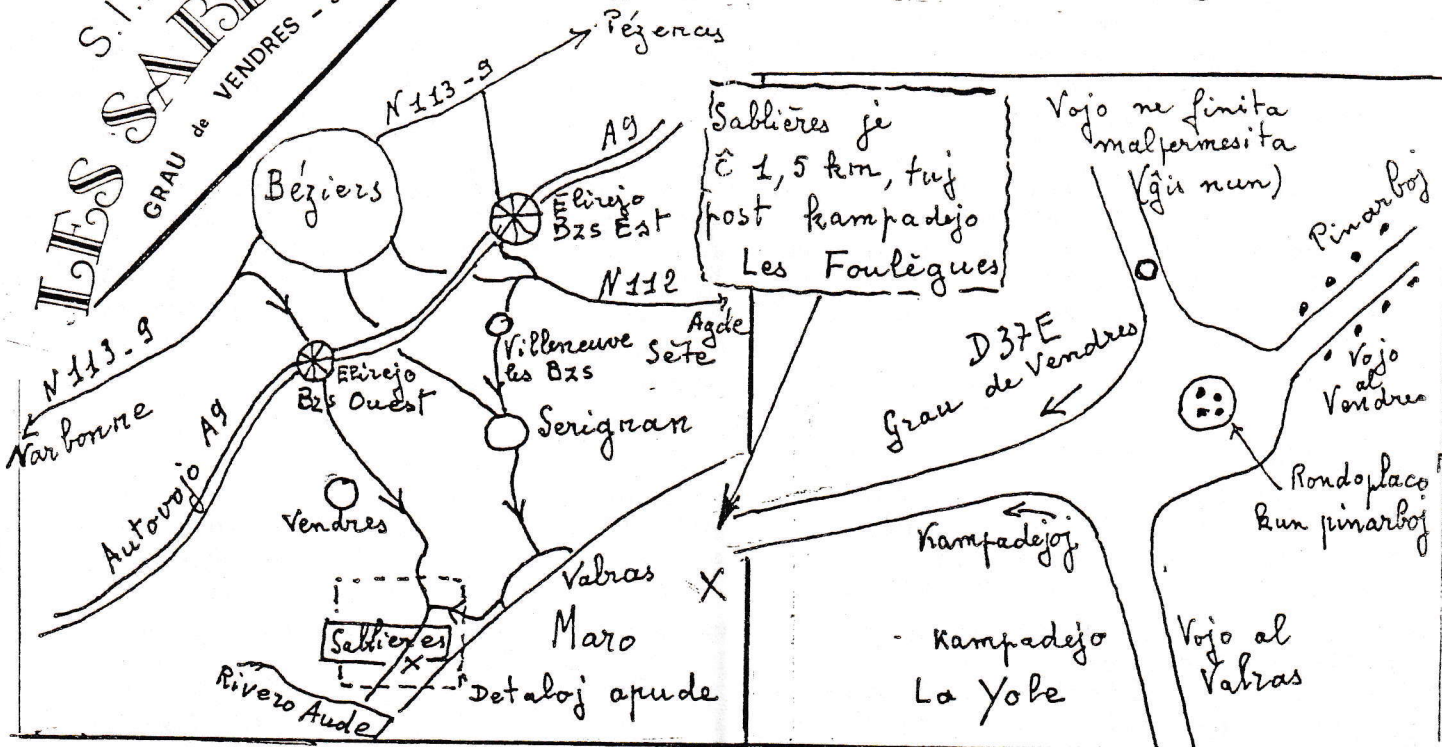 S.I.
LES SAB
GRAU de VENDRES -
Pézenas
N 113-9
A9
Béziers
Elirejo
Bzs Est
N 112
Agde
Sète
N 113-9
Narbonne
Elirejo
Bzs Ouest
Villeneuve
les Bzs
Serignan
Autovojo A9
Vendres
Valras
Sablieres
X
Maro
Rivero Aude
Detaloj apude
Sablières je
ĉ 1,5 km, tuj
post kampadejo
Les Foulègues
Vojo ne finita
malpermesita
(ĝis nun)
Pinarboj
D37E
de Vendres
Grau
Vojo
al
Vendres
Rondoplaco
kun pinarboj
Kampadejoj
X
Kampadejo
La Yole
Vojo al
Valras